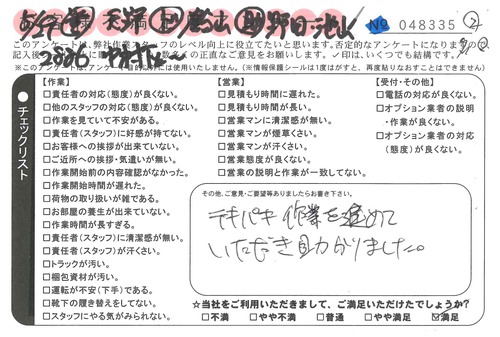 № 048335 ②
このアンケートは、弊社作業スタッフのレベル向上に役立てたいと思います。否定的なアンケートになりま
記入後
の正直なご意見をお願いします。✓印は、いくつでも結構です。
※このアンケートは
目的以外には使用いたしません。(※情報保護シールは1度がはすと、再度貼りなおすことはできません)
チェックリスト
【作業】
□責任者の対応(態度)が良くない。
□他のスタッフの対応(態度)が良くない。
□作業を見ていて不安がある。
□責任者(スタッフ)に好感が持てない。
□お客様への挨拶が出来ていない。
□ご近所への挨拶・気遣いが無い。
□作業開始前の内容確認がなかった。
□作業開始時間が遅れた。
□荷物の取り扱いが雑である。
□お部屋の養生が出来ていない。
□作業時間が長すぎる。
□責任者(スタッフ)に清潔感が無い。
□責任者(スタッフ)が汗くさい。
□トラックが汚い。
□梱包資材が汚い。
□運転が不安(下手)である。
□靴下の履き替えをしてない。
□スタッフにやる気がみられない。
【営業】
□見積もり時間に遅れた。
□見積もり時間が長い。
□営業マンに清潔感が無い。
□営業マンが煙草くさい。
□営業マンが汗くさい。
□営業態度が良くない。
□営業の説明と作業が一致してない。
【受付・その他】
□電話の対応が良くない。
□オプション業者の説明
・作業が良くない。
□オプション業者の対応
(態度)が良くない。
その他、ご意見・ご要望等ありましたらお書き下さい。
テキパキ作業を進めて
いただき助かりました。
☆当社をご利用いただきまして、ご満足いただけたでしょうか?
□不満 □やや不満 □普通 □やや満足 ☑満足